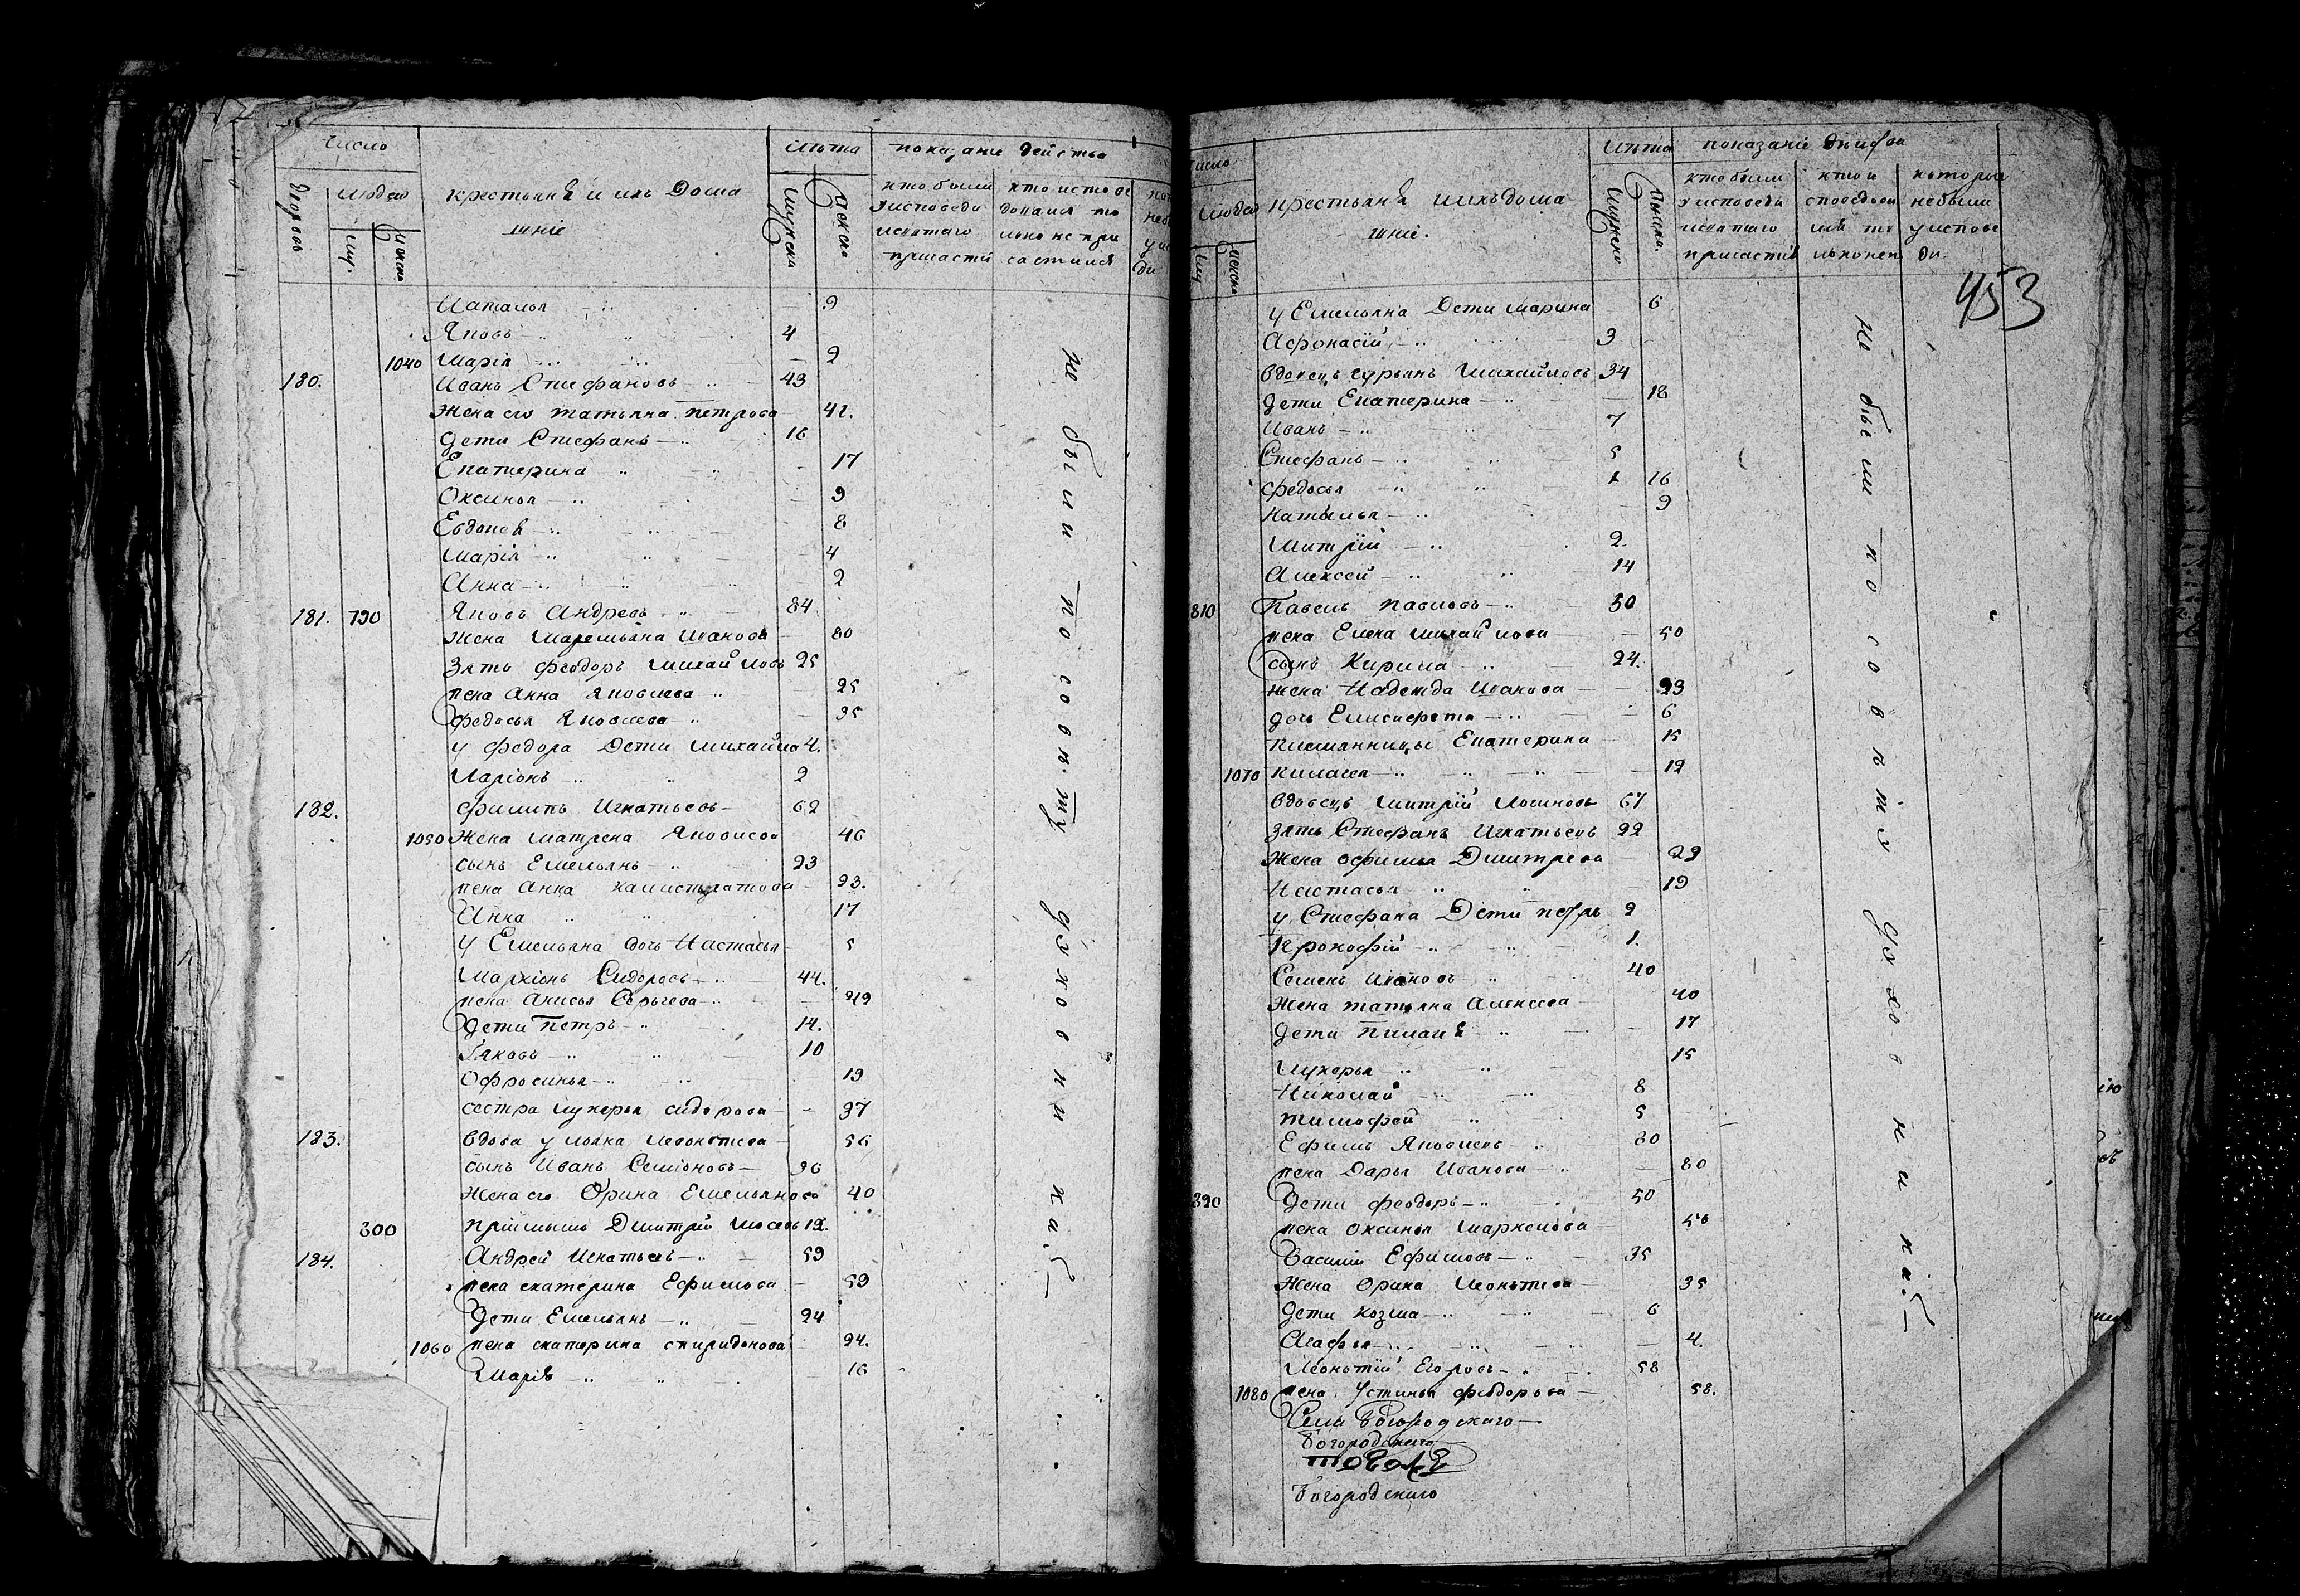 Число
Дворовъ
Людей
муж.
женска
крестьянѣ и ихъ Дома
шніе
Лѣта
Мужска
Женска
показаніе действа
кто были
у исповеди
и святаго
причастія
кто испове
довался то
лько не при
частился
Наталья 9
Яковъ 4
1040 Марія 2
180. Иванъ Стефановъ 43
Жена его татьяна петрова 42.
Дети Стефанъ 16
Екатерина 17
Оксинья 9
Евдокея 8
Марія 4
Анна 2
181. 790 Яковъ Андреевъ 84
Жена Маремьяна Иванова 80
Зять феодоръ Михайловъ 25
жена Анна Яковлева 25
федосья Яковлева 35
у федора Дети Михайла 4.
Ларіонъ 2
182. филипъ Игнатьевъ 62
1050 Жена Матрена Яковлева 46
сынъ Емельянъ 23
жена Анна калистратова 23.
Анна 17
у Емельяна дочь Настасья 5
Маркіонъ Сидоровъ 44.
жена Анисья Сергеева 49
Дети Петръ 14.
Іаковъ 10
Офросинья 19
сестра лукерья сидорова 37
183. Вдова ульяна Леонтиева 56
сынъ Иванъ Семіоновъ 36
Жена его Орина Емельянова 40
800 пріимышъ Дмитрій Мосеевъ 12.
184. Андрей Игнатьевъ 59
жена екатерина Ефимова 59
Дети Емельянъ 24
1060 жена екатерина спиридонова 24.
Марія 16
не были по совѣту духовника
Число
Людей
муж
женска
крестьянѣ ихъ дома
шніе.
Лѣта
Мужска
Женска.
показаніе дѣиства
кто были
у исповеди
и святаго
причастія
которыи
небыли
у испове
ди.
453
у Емельяна Дети Марина 6
Афонасій 3
Вдовецъ гурьянъ Михайловъ 34
Дети Екатерина 18
Иванъ 7
Стефанъ 5
федосья 16
Наталья 9
Митрій 2.
Алексей 14
810 Павелъ павловъ 50
жена Елена михайлова 50
сынъ Кирила 24.
жена Надежда Иванова 23
дочь Елисавета 6
племянницы Екатерина 15
1070 пилагея 12
Вдовецъ Митрій Логиновъ 67
Зять Стефанъ Игнатьевъ 22
Жена офимья Дмитрева 22
Настасья 19
у Стефана Дети петръ 2
Прокофій 1.
Семенъ Ивановъ 40
Жена татьяна Алексеева 40
Дети Пилагея 17
Лукерья 15
Николай 8
тимофей 5
Ефимъ Яковлевъ 80
жена Дарья Иванова 80
820 Дети феодоръ 50
жена Оксинья Маркелова 50
Василій Ефимовъ 35
Жена Орина Леонтиева 35
Дети козма 6
Агафья 4.
Леонтій Егоровъ 58
1080 жена Устинья федорова 58.
не были по совѣту духовника
Села Богородскаго
Богородскаго
Богородскаго